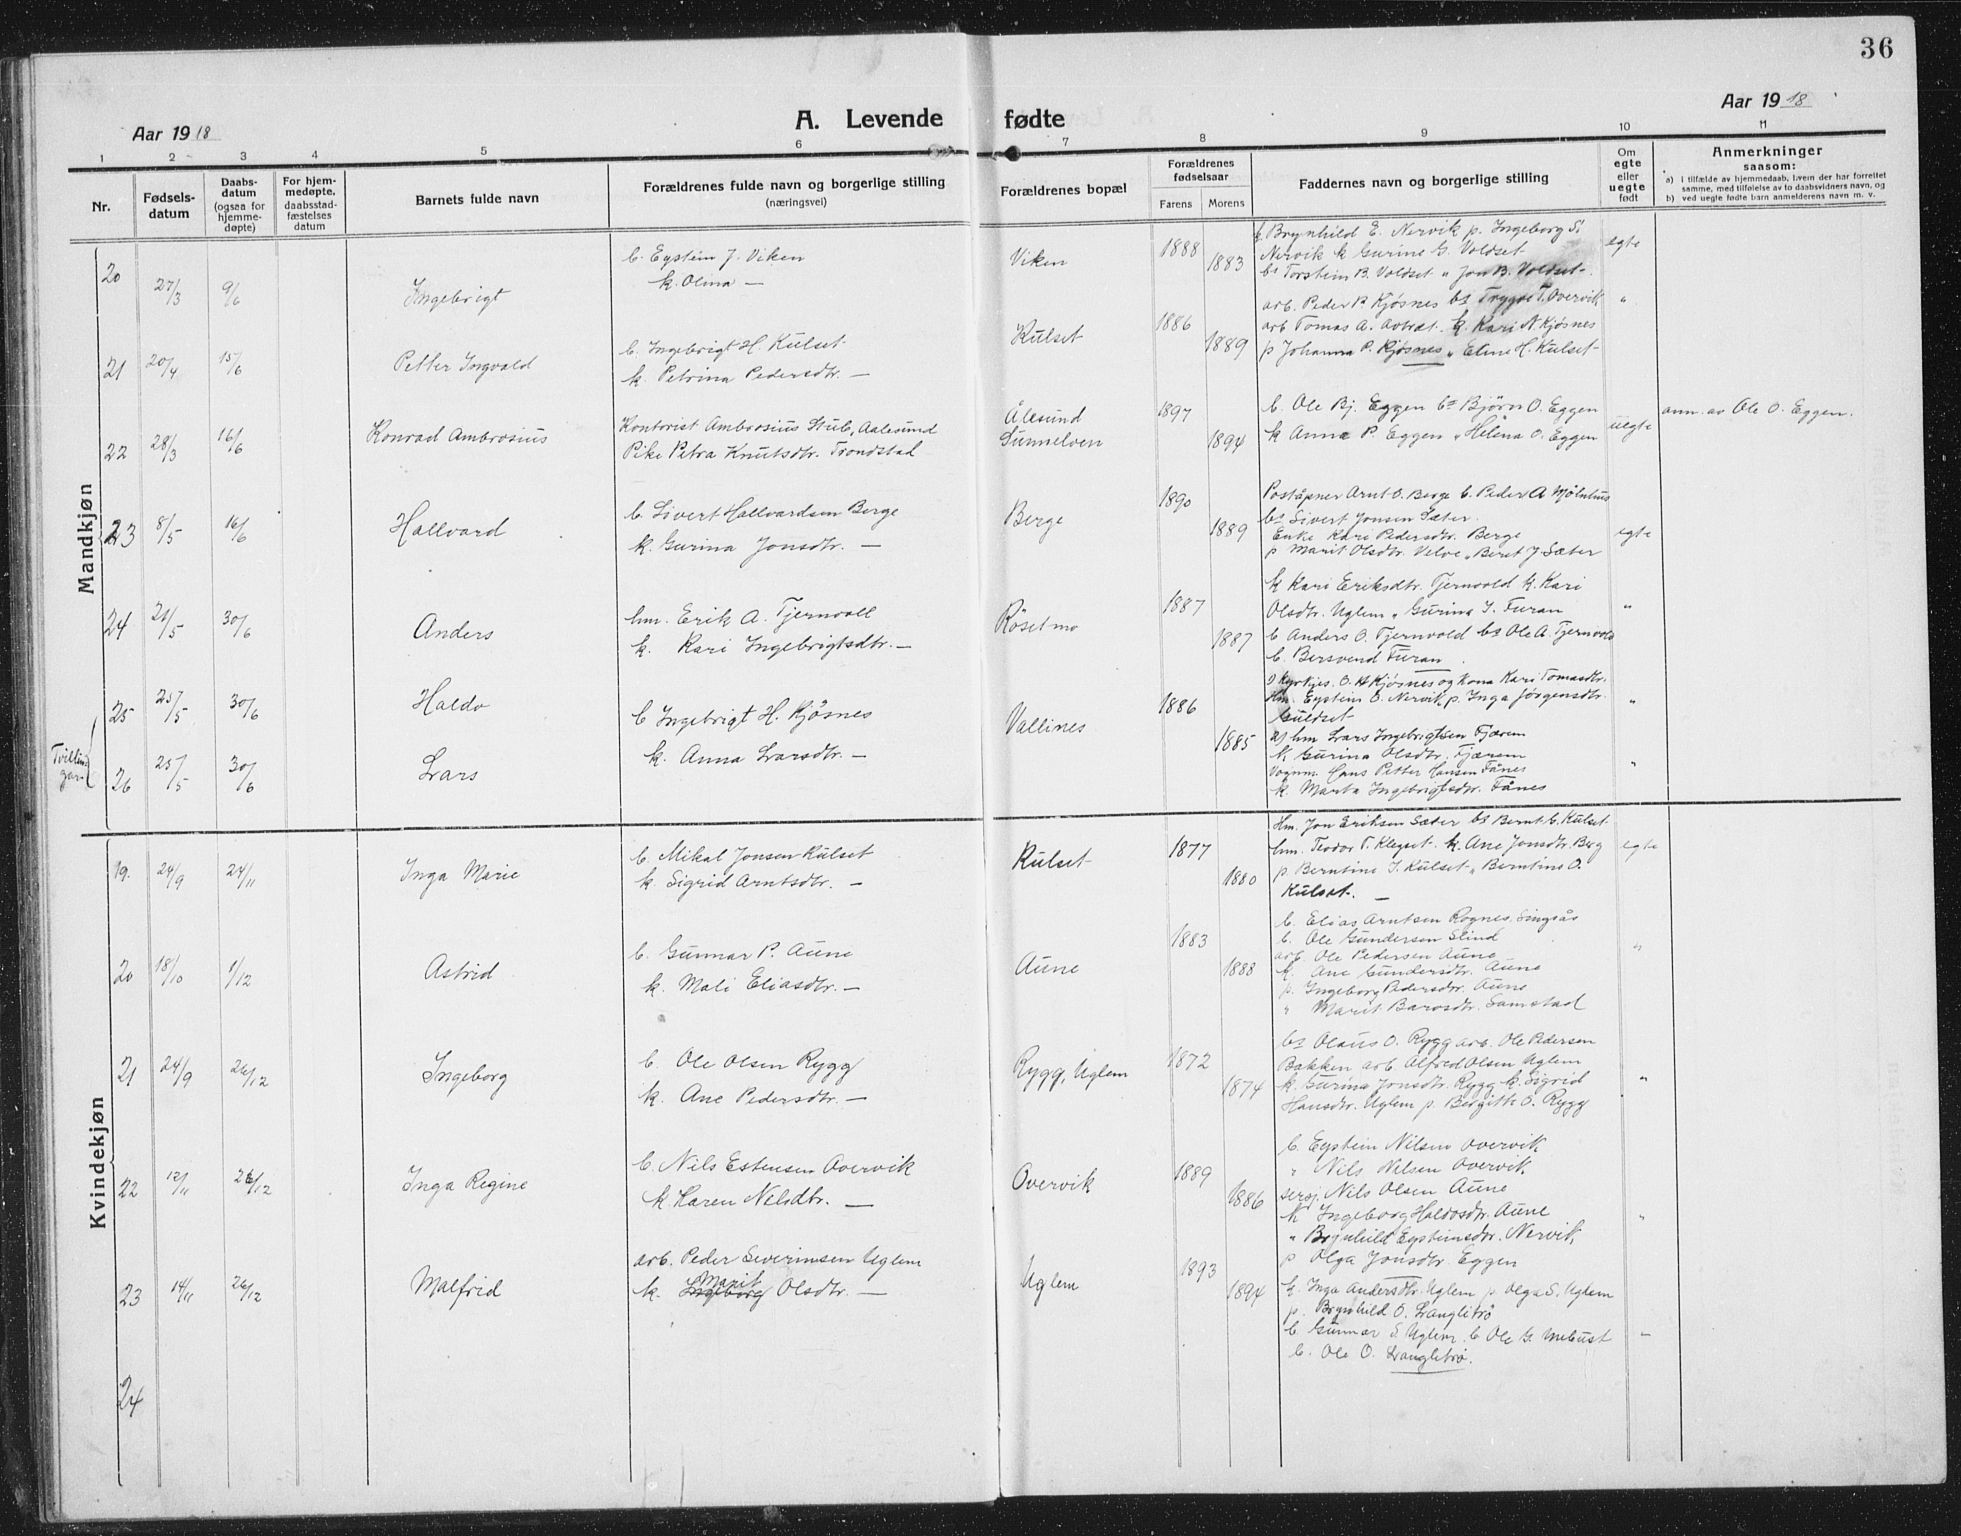 36
Aar 1918
A. Levende fødte
Aar 1918
1 2 3 4 5 6 7 8 9 10 11
Nr.
Fødselsdatum
Daabsdatum (ogsaa for hjemmedøpte)
For hjemmedøpte, daabsstadfæstelses datum
Barnets fulde navn
Forældrenes fulde navn og borgerlige stilling (næringsvei)
Forældrenes bopæl
Forældrenes fødselsaar
Farens Morens
Faddernes navn og borgerlige stilling
Om egte eller uegte født
Anmerkninger saasom:
a) i tilfælde av hjemmedaab, hvem der har forrettet samme, med tilføielse av to daabsvidners navn, og
b) ved uegte fødte barn anmelderens navn m. v.
Mandkjøn
20 27/3 9/6 Ingebrigt
b. Eystein J. Viken
k. Olina —
Viken 1888 1883
k. Brynhild E. Nervik p. Ingeborg S.
Nervik k Gurine G. Voldset
bs Torstein B. Voldset " Jon B. Voldset
egte
21 20/4 15/6 Petter Ingvald
b. Ingebrigt H. Kulset
k. Petrina Pedersdtr. —
Kulset 1886 1889
arb. Peder P. Kjøsnes bs Trygve T. Overvik
arb Tomas A. k. Kari N Kjøsnes
p Johanna P. Kjøsnes " Eline H. Kulset
"
22 28/3 16/6 Konrad Ambrosius
Kontorist Ambrosius Stub, Aalesund
Pike Petra Knutsdtr. Trondstad
Ålesund
Sunnelven
1897 1894
b. Ole Bj. Eggen bs Bjørn O. Eggen
k Anna P. Eggen " Helena O. Eggen
uegte
anm. av Ole O. Eggen.
23 8/5 16/6 Hallvard
b. Sivert Hallvardsen Berge
k. Gurina Jonsdtr. —
Berge 1890 1889
Poståpner Arnt O. Berge b. Peder A Mjølnhus
bs Sivert Jonsen Sæter
Enke Kari Pedersdtr. Berge
p Marit Olsdtr. Velve " Berit J. Sæter
egte
24 21/5 30/6 Anders
hm. Erik A. Tjernvoll
k. Kari Ingebrigtsdtr. —
Røsetmo 1887 1887
k Kari Eriksdtr. Tjernvold k. Kari
Olsdtr. Uglem " Gurina I. Furan
b Anders O. Tjernvold bs Ole A. Tjernvold
b. Bersvend Furan
"
Tvillingar
25 25/5 30/6 Haldo
b Ingebrigt H. Kjøsnes
k. Anna Larsdtr. —
Vallines 1886 1885
Kyrkjes. O. H Kjøsnes og kona Kari Tomasdtr.
Hm. Eystein O. Nervik p. Inga Jørgensdtr.
Guldset
"
26 25/5 30/6 Lars
hm Lars Ingebrigtsen Fjærem
k. Gurina Olsdtr. Fjærem
Vognm. Hans Petter Hansen Fånes
k. Marta Ingebrigtsdtr. Fånes
"
Kvindekjøn
19. 24/9 24/11 Inga Marie
b. Mikal Jonsen Kulset
k. Sigrid Arntsdtr. —
Kulset 1877 1880
Hm. Jon Eriksen Sæter bs Bernt E. Kulset
hm. Teodor T. Klegset. k. Ane Jonsdtr. Berg
p Berntine I. Kulset " Berntine O.
Kulset. —
egte
20 18/10 1/12 Astrid
b. Gunnar P. Aune
k. Mali Eliasdtr. —
Aune 1883 1888
b. Elias Arntsen Rognes, Singsås
b. Ole Gundersen Slind
arb. Ole Pedersen Aune
k. Ane Gundersdtr. Aune
p. Ingeborg Pedersdtr. Aune
" Marit Barosdtr. Samstad
"
21 24/9 26/12 Ingeborg
b. Ole Olsen Rygg
k. Ane Pedersdtr. —
Rygg, Uglem 1872 1874
bs Olaus O. Rygg arb. Ole Pedersen
Bakken arb. Alfred Olsen Uglem
k. Gurina Jonsdtr. Rygg k. Sigrid
Hansdtr. Uglem p. Bergitte O. Rygg
"
22 12/11 26/12 Inga Regine
b. Nils Estensen Overvik
k. Karen Nelsdtr. —
Overvik 1889 1886
b. Eystein Nilsen Overvik
" Nils Nilsen Overvik
sersj. Nils Olsen Aune
k Ingeborg Haldosdtr. Aune
" Brynhild Eysteinsdtr. Nervik
p Olga Jonsdtr Eggen
"
23 14/11 26/12 Malfrid
arb. Peder Severinsen Uglem
k. Ingeborg Marit Olsdtr. —
Uglem 1893 1894
k. Inga Andersdtr. Uglem p Olga S. Uglem
p. Brynhild O. Langlitrø
b. Gunnar S. Uglem b Ole G. Unbust
b. Ole O. Langlitrø.
"
24